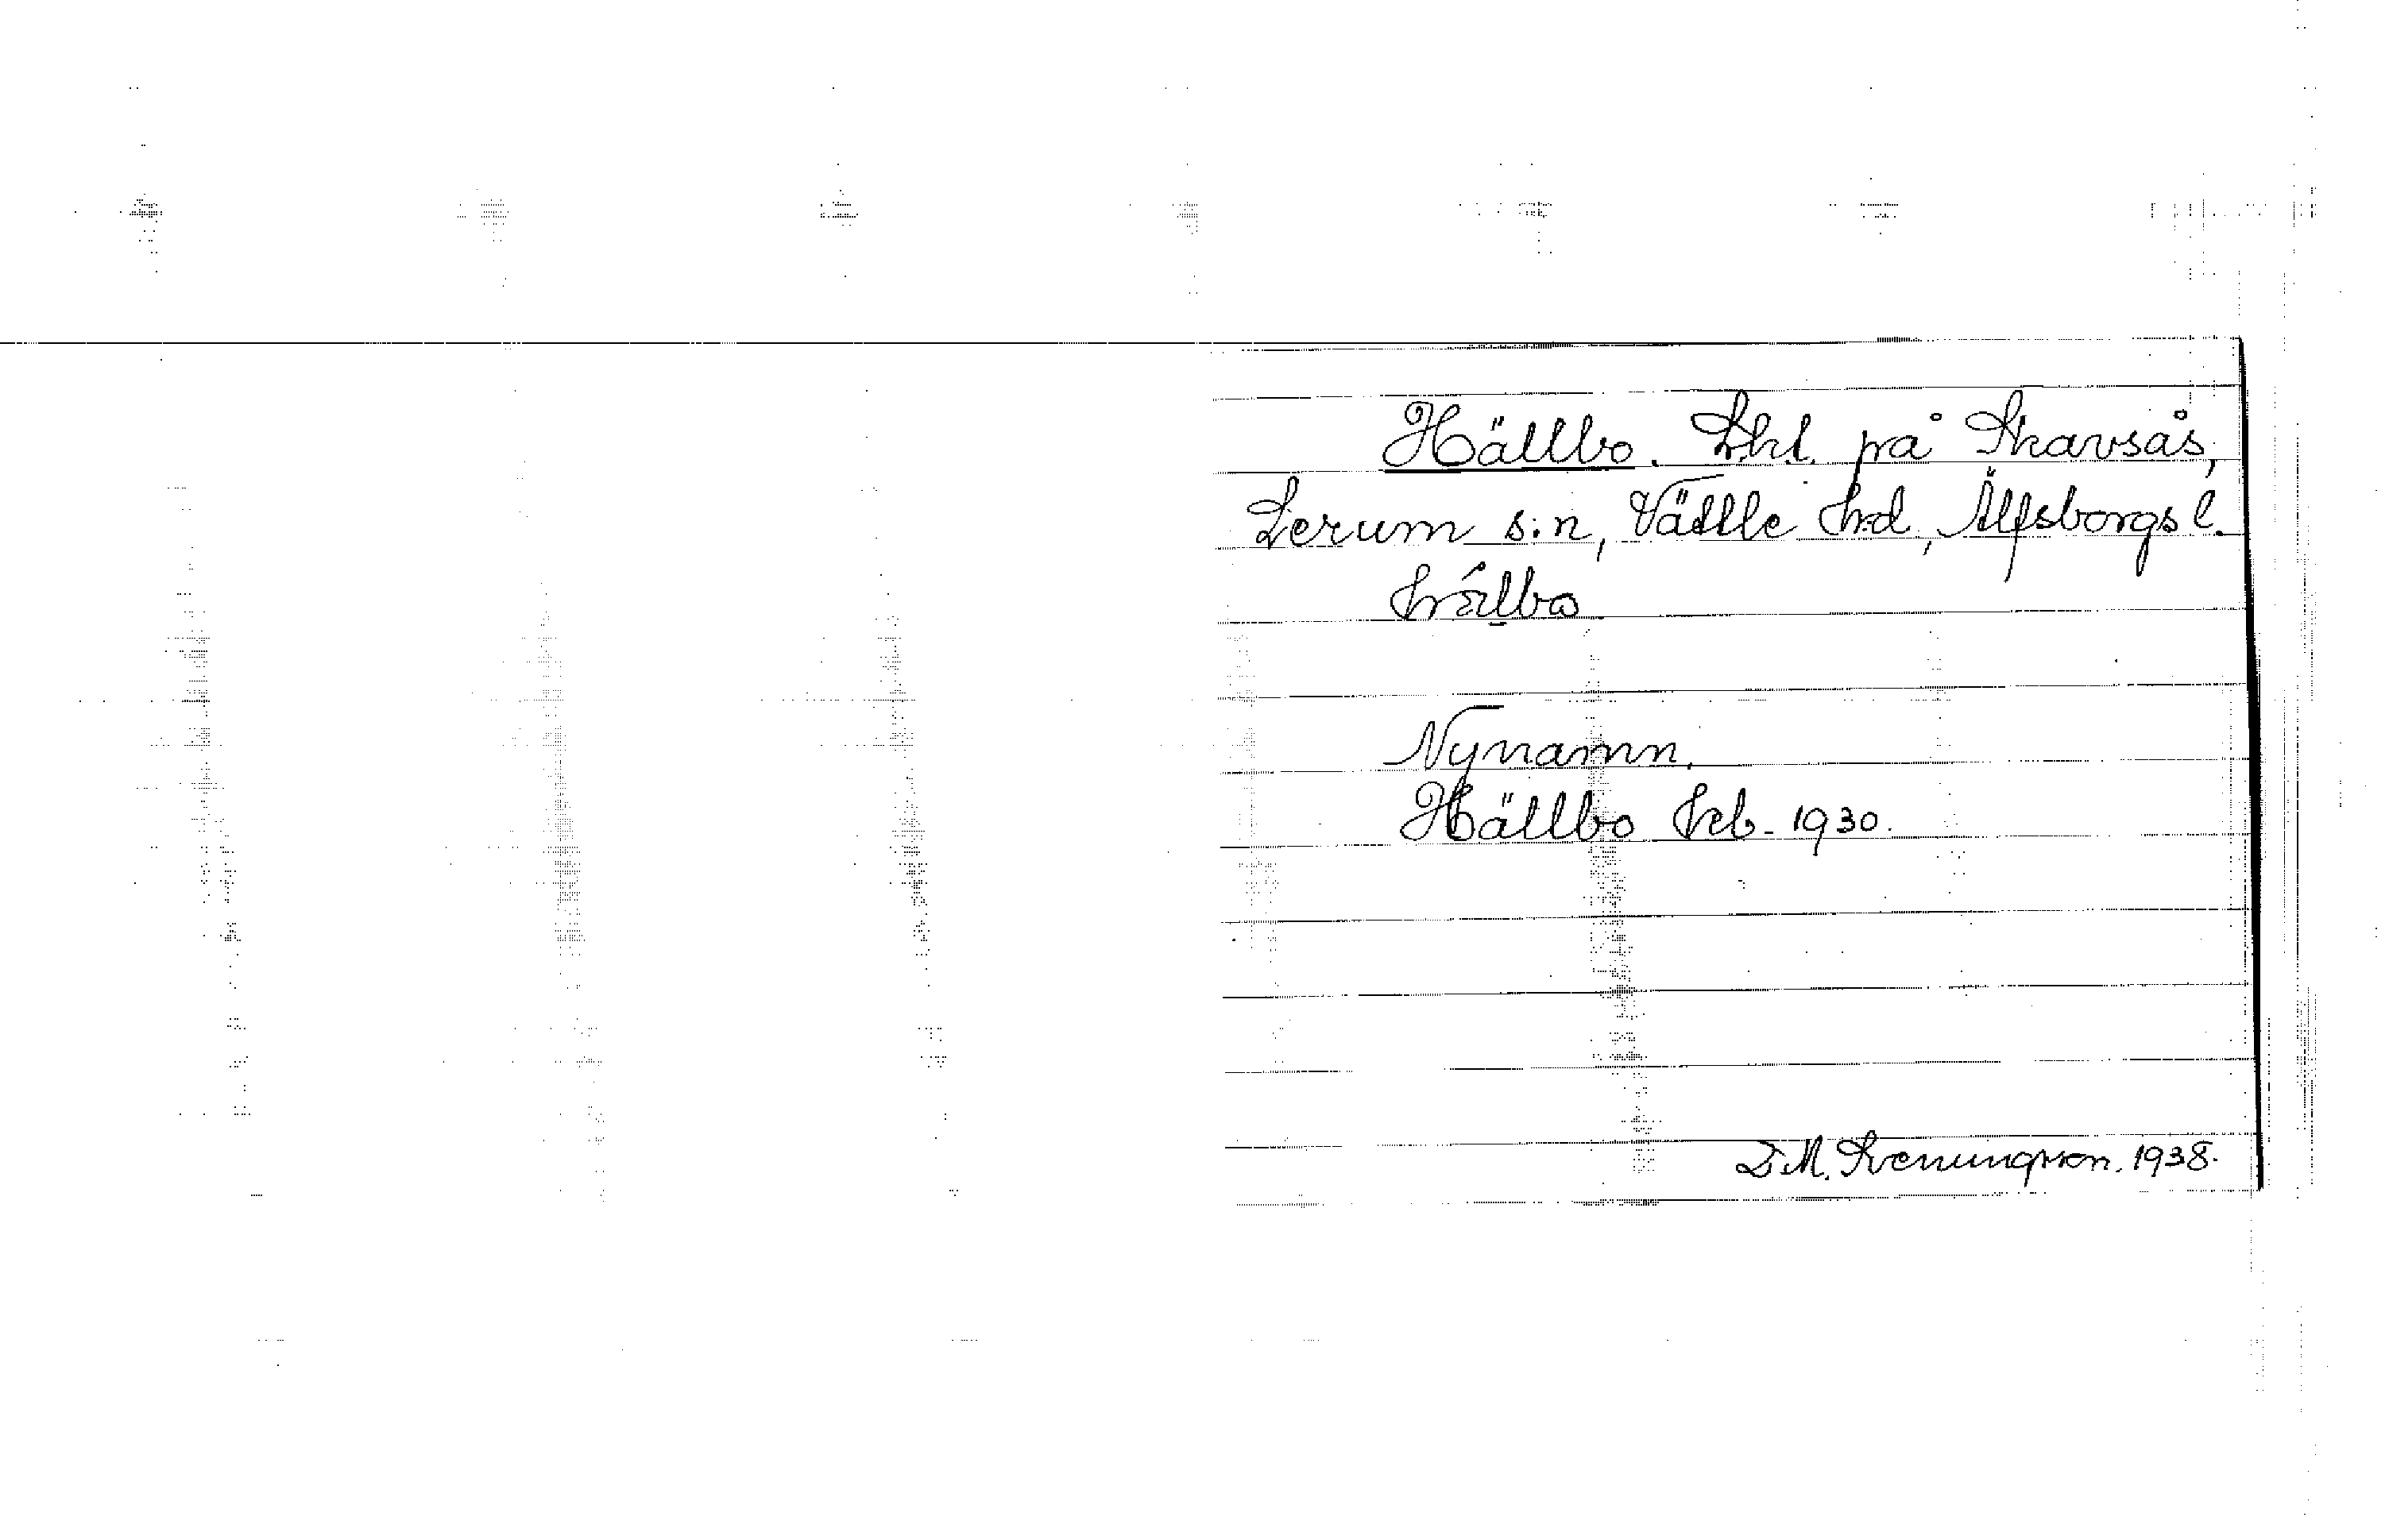 Hällbo. Lht. på Skavsås,
Lerum s:n, Vättle hd, Älfsborgs l.
Nynamn.
Hällbo Feb. 1930.
D.M. Svenungsson. 1938.